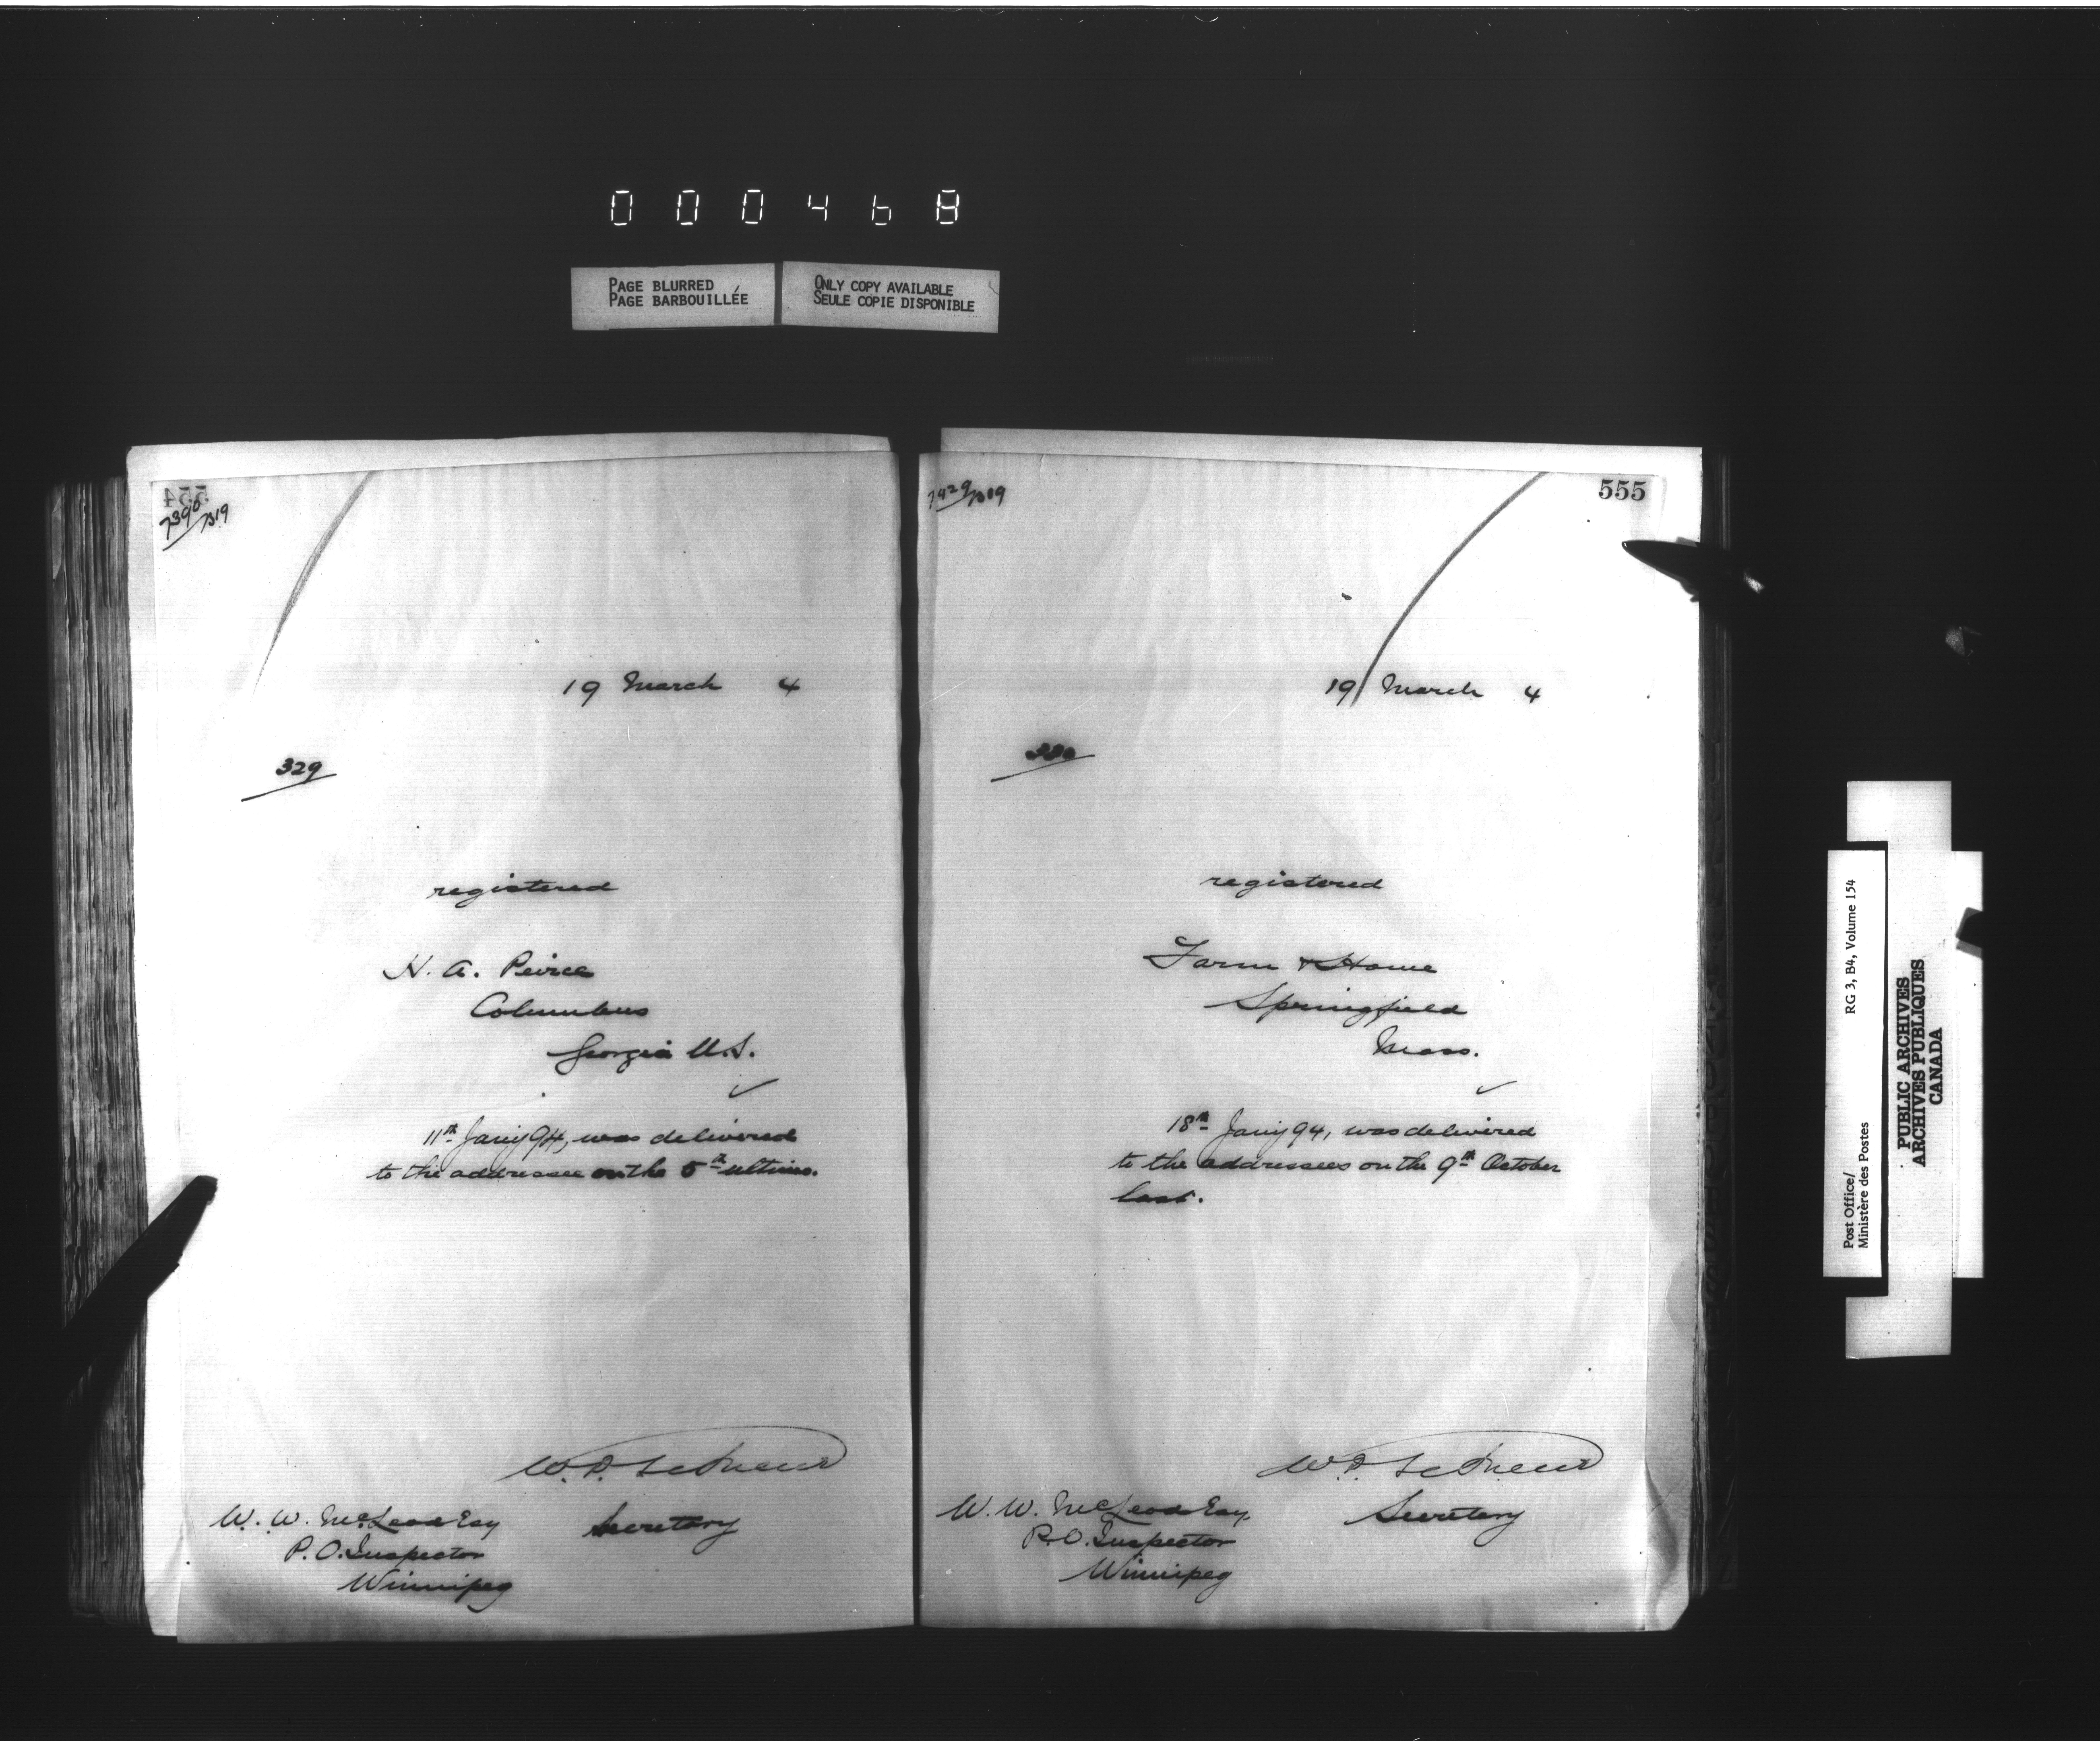 000468
PAGE BLURRED
PAGE BARBOUILLÉE
ONLY COPY AVAILABLE
SEULE COPIE DISPONIBLE
554
7390/B19
19 March 4
329
registered
H. A. Peirce
Columbus
Georgia U.S.
11th Jany 94, was delivered
to the addressee on the 5th ultimo.
Secretary
W. W. McLeod Esq
P. O. Inspector
Winnipeg
7429/B19
555
19 March 4
330
registered
Farm & Home
Springfield
Mass.
18th Jany 94, was delivered
to the addressees on the 9th October
last.
Secretary
W. W. McLeod Esq.
P. O. Inspector
Winnipeg
Post Office/
Ministère des Postes
RG 3, B4, Volume 154
PUBLIC ARCHIVES
ARCHIVES PUBLIQUES
CANADA